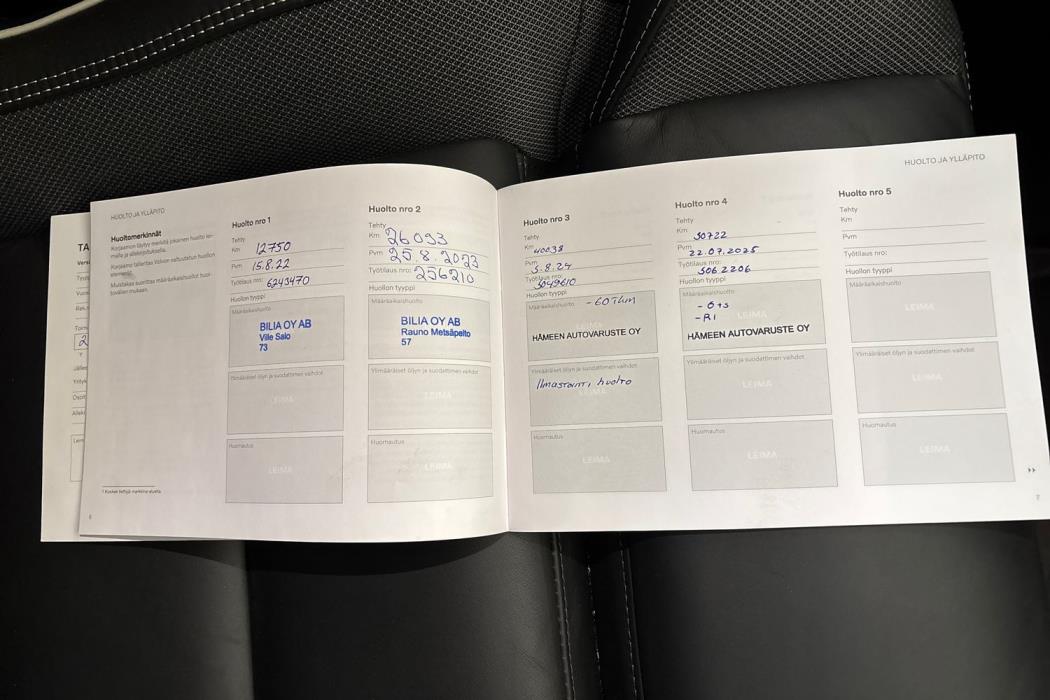 HUOLTO JA YLLÄPITO
Huoltomerkinnät
TA
Huolto nro 1
Tehty
Km 12750
Pvm 15.8.22
Työtilaus nro: 6243470
Huollon tyyppi
Määräaikaishuolto
BILIA OY AB
Ville Salo
73
Ylimääräiset öljyn ja suodattimen vaihdot
LEIMA
Huomautus
LEIMA
6
Huolto nro 2
Tehty
Km 26093
Pvm 25.8.2023
Työtilaus nro: 256210
Huollon tyyppi
Määräaikaishuolto
BILIA OY AB
Rauno Metsäpelto
57
Ylimääräiset öljyn ja suodattimen vaihdot
LEIMA
Huomautus
LEIMA
HUOLTO JA YLLÄPITO
Huolto nro 3
Tehty
Km 40038
Pvm 5.8.24
Työtilaus nro: 3049610
Huollon tyyppi
Määräaikaishuolto -60 tkm
HÄMEEN AUTOVARUSTE OY
Ylimääräiset öljyn ja suodattimen vaihdot
Ilmastointi huolto
LEIMA
Huomautus
LEIMA
Huolto nro 4
Tehty
Km 50722
Pvm 22.07.2025
Työtilaus nro: 3062206
Huollon tyyppi
Määräaikaishuolto
- Ö+s
- RI
LEIMA
HÄMEEN AUTOVARUSTE OY
Ylimääräiset öljyn ja suodattimen vaihdot
LEIMA
Huomautus
LEIMA
Huolto nro 5
Tehty
Km
Pvm
Työtilaus nro:
Huollon tyyppi
Määräaikaishuolto
LEIMA
Ylimääräiset öljyn ja suodattimen vaihdot
LEIMA
Huomautus
LEIMA
7